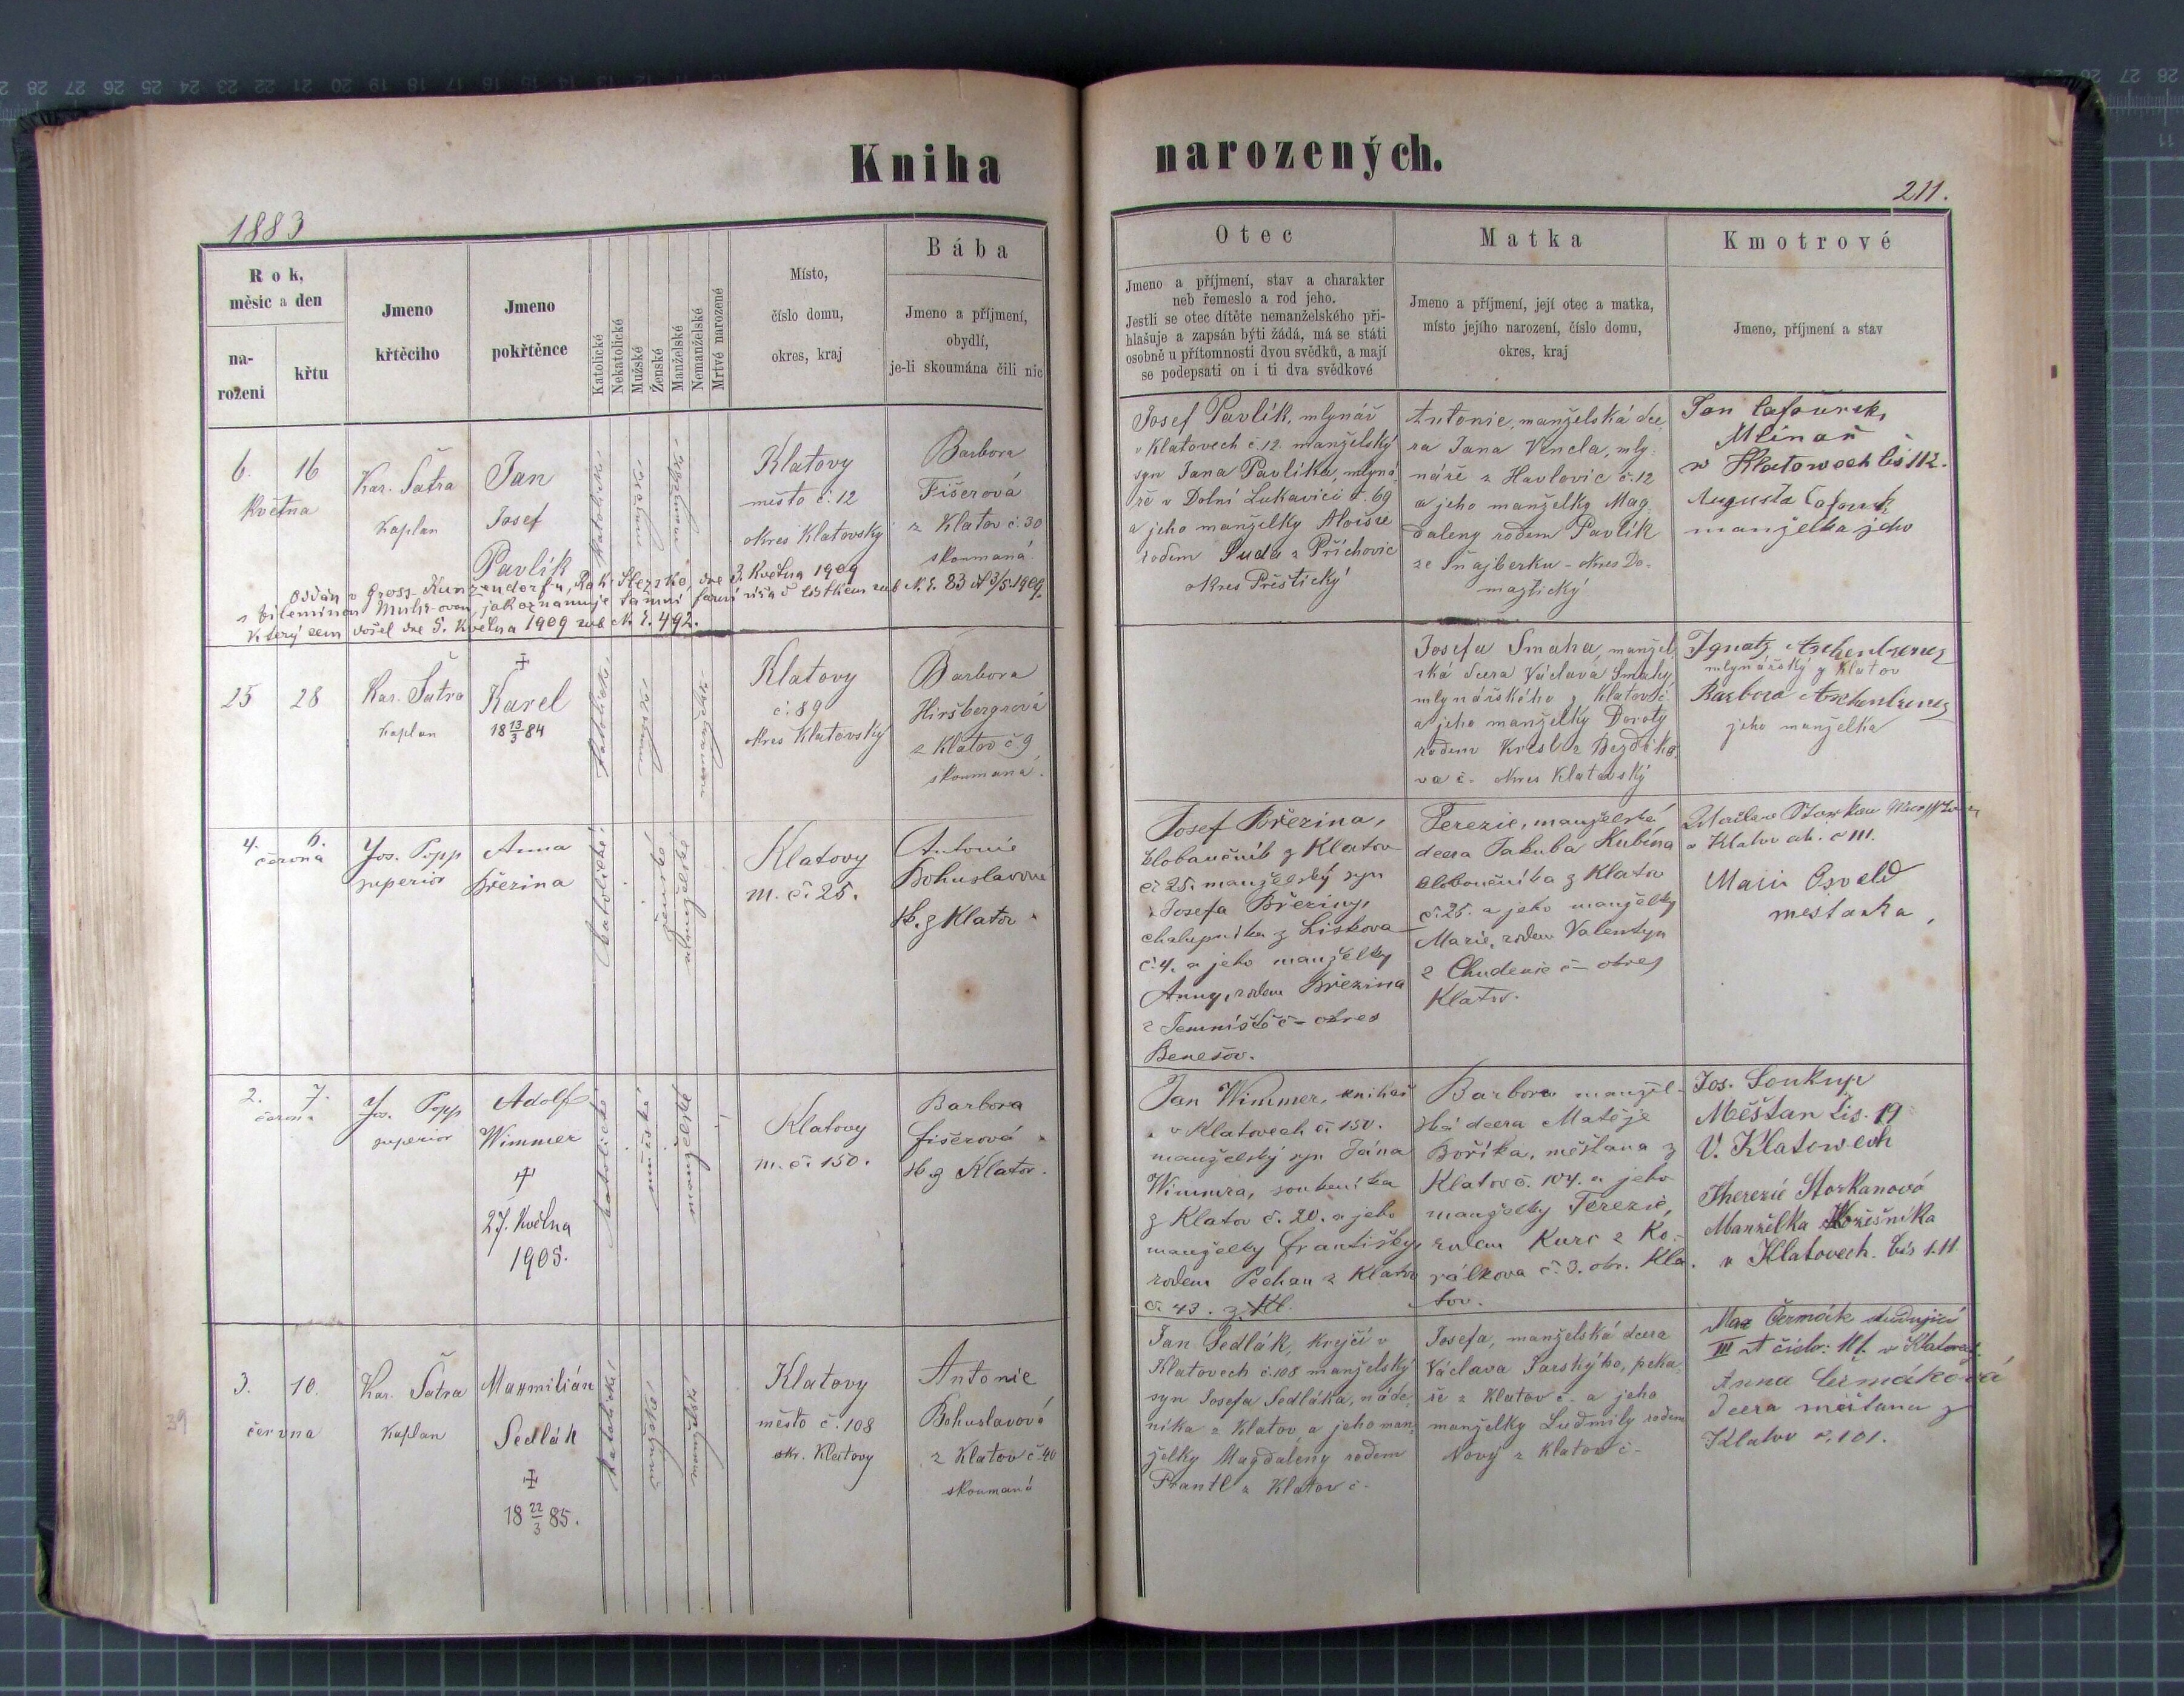 Kniha narozených.
1883
211.
Rok,
měsíc a den
na-
rození
křtu
Jmeno
křtěcího
Jmeno
pokřtěnce
Katolické
Nekatolické
Mužské
Ženské
Manželské
Nemanželské
Mrtvé narozené
Místo,
číslo domu,
okres, kraj
Bába
Jmeno a příjmení,
obydlí,
je-li skoumána čili nic
Otec
Jmeno a příjmení, stav a charakter
neb řemeslo a rod jeho.
Jestli se otec dítěte nemanželského při-
hlašuje a zapsán býti žádá, má se státi
osobně u přítomnosti dvou svědků, a mají
se podepsati on i ti dva svědkové
Matka
Jmeno a příjmení, její otec a matka,
místo jejího narození, číslo domu,
okres, kraj
Kmotrové
Jmeno, příjmení a stav
6. 16
Května
Kar. Šatra
Kaplan
Jan
Josef
Pavlík
katolické
mužské
manželské
Klatovy
město č. 12
okres Klatovský
Barbora
Fišerová
z Klatov č. 30
skoumaná.
Oddán v Gross-Kunzendorf u, Rak. Slezsko, dne 3. Května 1909
s Filominou Muhr-ovou, jak oznamuje tamní farní úřad lístkem sub N. E. 83 dd 3/5 1909.
který sem došel dne 5. Května 1909 sub N. E. 492.
Josef Pavlík, mlynář
v Klatovech č. 12. manželský
syn Jana Pavlíka, mlyná-
ře v Dolní Lukavici č. 69
a jeho manželky Aloisie
rodem Duda z Příchovic
okres Přeštický
Antonie, manželská dce-
ra Jana Vencla, mly-
náře z Havlovic č. 12
a jeho manželky Mag-
daleny rodem Pavlík
ze Šnajberku - okres Do-
mažlický
Jan
Mlinař
w Klatowech čís 112.
Augusta
manželka jeho
25 28
Kar. Šatra
kaplan
+
Karel
18 13/3 84
katolické
mužské
nemanželské
Klatovy
č. 89
okres Klatovský
Barbora
Hiršbergrová
z Klatov č 9
skoumaná.
Josefa Smaha, manžel-
ská dcera Václava Smahy,
mlynářského z Klatov č.
a jeho manželky Doroty
rodem Kresl z Bezděko-
va č. okres Klatovský
Ignatz
mlynářský z Klatov
Barbora
jeho manželka
4. 6.
června
Jos. Popp
superior
Anna
Březina
katolické
ženské
manželské
Klatovy
m. č. 25.
Antonie
Bohuslavová
sk. z Klatov
Josef Březina,
kloboučník z Klatov
č. 25. manželský syn
Josefa Březiny,
chalupníka z Liskova
č. 4. a jeho manželky
Anny, rodem Březina
z Temniště č - okres
Benešov.
Terezie, manželská
dcera Jakuba Kubína
kloboučníka z Klatov
č. 25. a jeho manželky
Marie, rodem Valentyn
z Chudenic č - okres
Klatov.
v Klatov č 111.
Marie Osvald
mestanka,
2. 7.
června
Jos. Popp
superior
Adolf
Wimmer
+
27. Května
1905.
katolické
mužské
manželské
Klatovy
m. č. 150.
Barbora
Fišerová
sk. z Klatov.
Jan Wimmer, knihař
v Klatovech č. 150.
manželský syn Jana
Wimmra, soukeníka
z Klatov č. 20. a jeho
manželky Františky,
rodem Pechan z Klatov
č. 43. z Kl.
Barbora manžel-
ská dcera Matěje
Boříka, měštana z
Klatov č. 104. a jeho
manželky Terezie,
rodem Kurc z Ko-
rálkova č. 3. okr. Kla-
tov.
Jos. Soukup
Měštan čis. 19
V. Klatowech
Therezie Storkanová
Manželka Kožešníka
v Klatovech. čís 111
3. 10.
června
Kar. Šatra
kaplan
Maxmilián
Sedlák
+
18 22/3 85.
katolické
mužské
manželské
Klatovy
město č. 108
okr. Klatovy
Antonie
Bohuslavová
z Klatov č. 40
skoumaná
Jan Sedlák, krejčí v
Klatovech č. 108 manželský
syn Josefa Sedláka, náde-
níka z Klatov a jeho man-
želky Magdaleny rodem
Prantl z Klatov č -
Josefa, manželská dcera
Václava Sarského, peka-
ře z Klatov č. a jeho
manželky Ludmily rodem
Nový z Klatov č -
Max Čermák studující
v Klatovech.
Anna Čermáková
Dcera měštana z
Klatov č. 101.
39